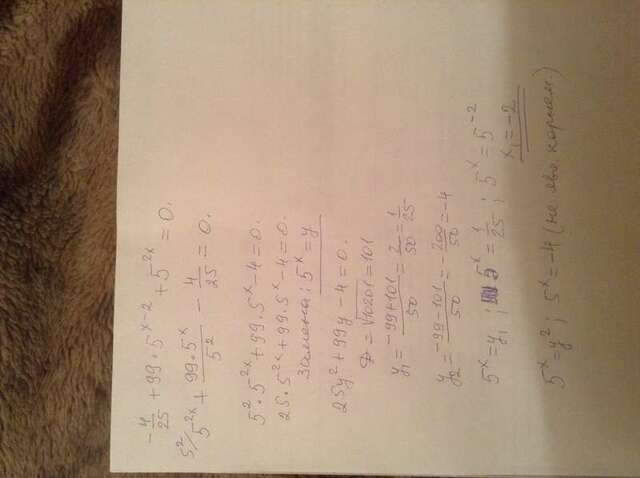 -4/25 + 99·5^(x-2) + 5^(2x) = 0.
5^2/ 5^(2x) + (99·5^x)/5^2 - 4/25 = 0.
5^2·5^(2x) + 99·5^x - 4 = 0.
25·5^(2x) + 99·5^x - 4 = 0.
Замена: 5^x = y
25y^2 + 99y - 4 = 0.
D = √10201 = 101
y₁ = (-99+101)/50 = 2/50 = 1/25
y₂ = (-99-101)/50 = -200/50 = -4
5^x = y₁ ; 5^x = 1/25 ; 5^x = 5^(-2)
x₁ = -2
5^x = y^2 ; 5^x = -4 (не явл. корнем.)